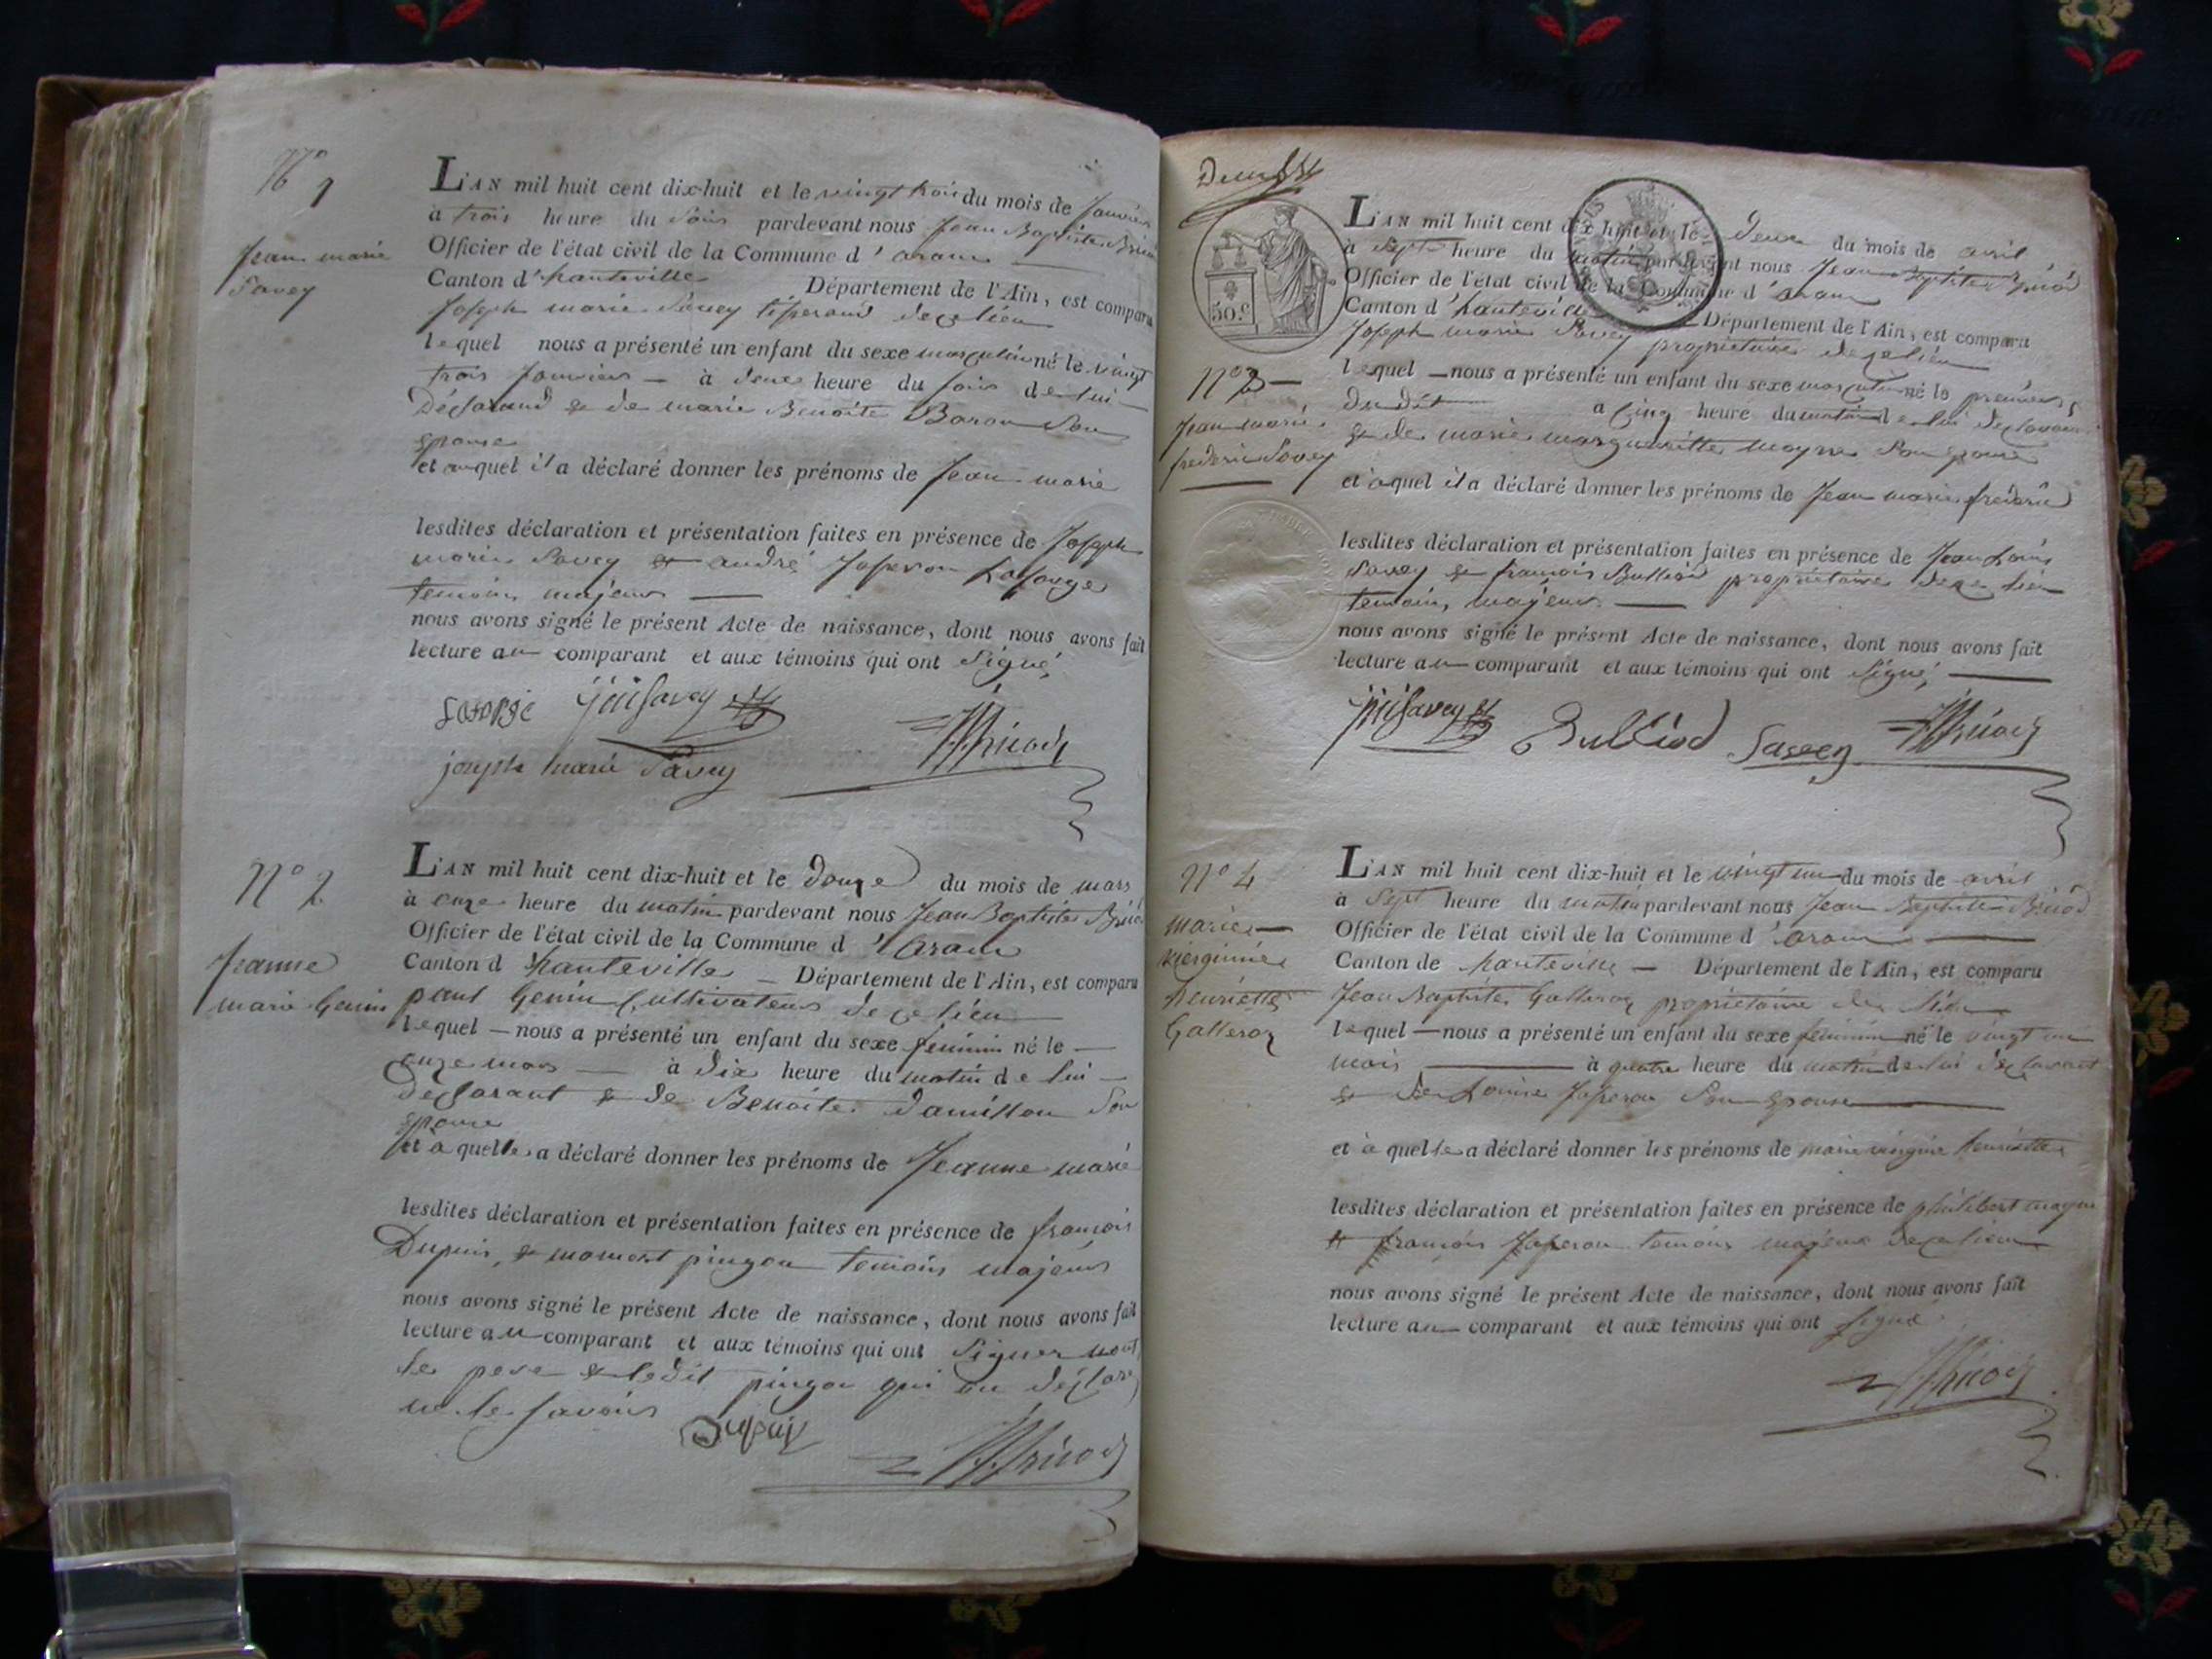 N° 1
Jean marie
Savey
L'AN mil huit cent dix-huit et le vingt trois du mois de Janvier
à trois heure du Soir pardevant nous Jean Baptiste Briod
Officier de l'état civil de la Commune d'aranc
Canton d'hauteville Département de l'Ain, est comparu
Joseph marie Savey decelieu
lequel nous a présenté un enfant du sexe masculin né le vingt
trois Janvier à deux heure du soir de lui
Déclarand & de marie Benoite Baron Son
Epouse
et auquel il a déclaré donner les prénoms de Jean marie
lesdites déclaration et présentation faites en présence de Joseph
marie Savey & andré Joseron Laforge
temoins majeurs
nous avons signé le présent Acte de naissance, dont nous avons fait
lecture au comparant et aux témoins qui ont Signé,
Laforge Savey
joseph marie Savey Briod
N° 2
Jeanne
marie Genin
L'AN mil huit cent dix-huit et le douze du mois de mars
à onze heure du matin pardevant nous Jean Baptiste Briod
Officier de l'état civil de la Commune d'aranc
Canton d hauteville Département de l'Ain, est comparu
paul Genin Cultivateur decelieu
lequel nous a présenté un enfant du sexe feminin né le
onze mars à dix heure du matin de lui
declarant & de Benoite Son
Epouse
et à quelle a déclaré donner les prénoms de Jeanne marie
lesdites déclaration et présentation faites en présence de françois
Dupuis, & pingon temoins majeurs
nous avons signé le présent Acte de naissance, dont nous avons fait
lecture au comparant et aux témoins qui ont Signer non
le pere & ledit pingon qui on déclare
ne le savoir
Dupuis Briod
50.c
N° 3
Jean marie
frederic Savey
L'AN mil huit cent dix-huit et le deux du mois de avril
à Sept heure du matin pardevant nous Jean Baptiste Briod
Officier de l'état civil de la Commune d'aranc
Canton d'hauteville Département de l'Ain, est comparu
Joseph marie Savey propriétaire decelieu
lequel nous a présenté un enfant du sexe masculin né le premier
Dudit a Cinq heure du matin de lui declarant
& de marie margueritte moyne Son Epouse
et àquel il a déclaré donner les prénoms de Jean marie frederic
lesdites déclaration et présentation faites en présence de Jean Louis
Savey & francois Bulliod propriétaires decelieu
temoins, majeurs
nous avons signé le présent Acte de naissance, dont nous avons fait
lecture au comparant et aux témoins qui ont Signé,
Savey Bulliod Savey Briod
N° 4
marie
viergienie
henriette
Galleron
L'AN mil huit cent dix-huit et le vingt un du mois de avril
à Sept heure du matin pardevant nous Jean Baptiste Briod
Officier de l'état civil de la Commune d'aranc
Canton de hauteville Département de l'Ain, est comparu
Jean Baptiste Galleron propriétaire
lequel nous a présenté un enfant du sexe féminin né le vingt un
mois à quatre heure du matin de lui declarant
& de Louise Joseron Son Epouse
et à quelle a déclaré donner les prénoms de marie virginie henriette
lesdites déclaration et présentation faites en présence de philibert moyne
& françois Joseron temoins majeurs decelieu
nous avons signé le présent Acte de naissance, dont nous avons fait
lecture au comparant et aux témoins qui ont Signé
Briod